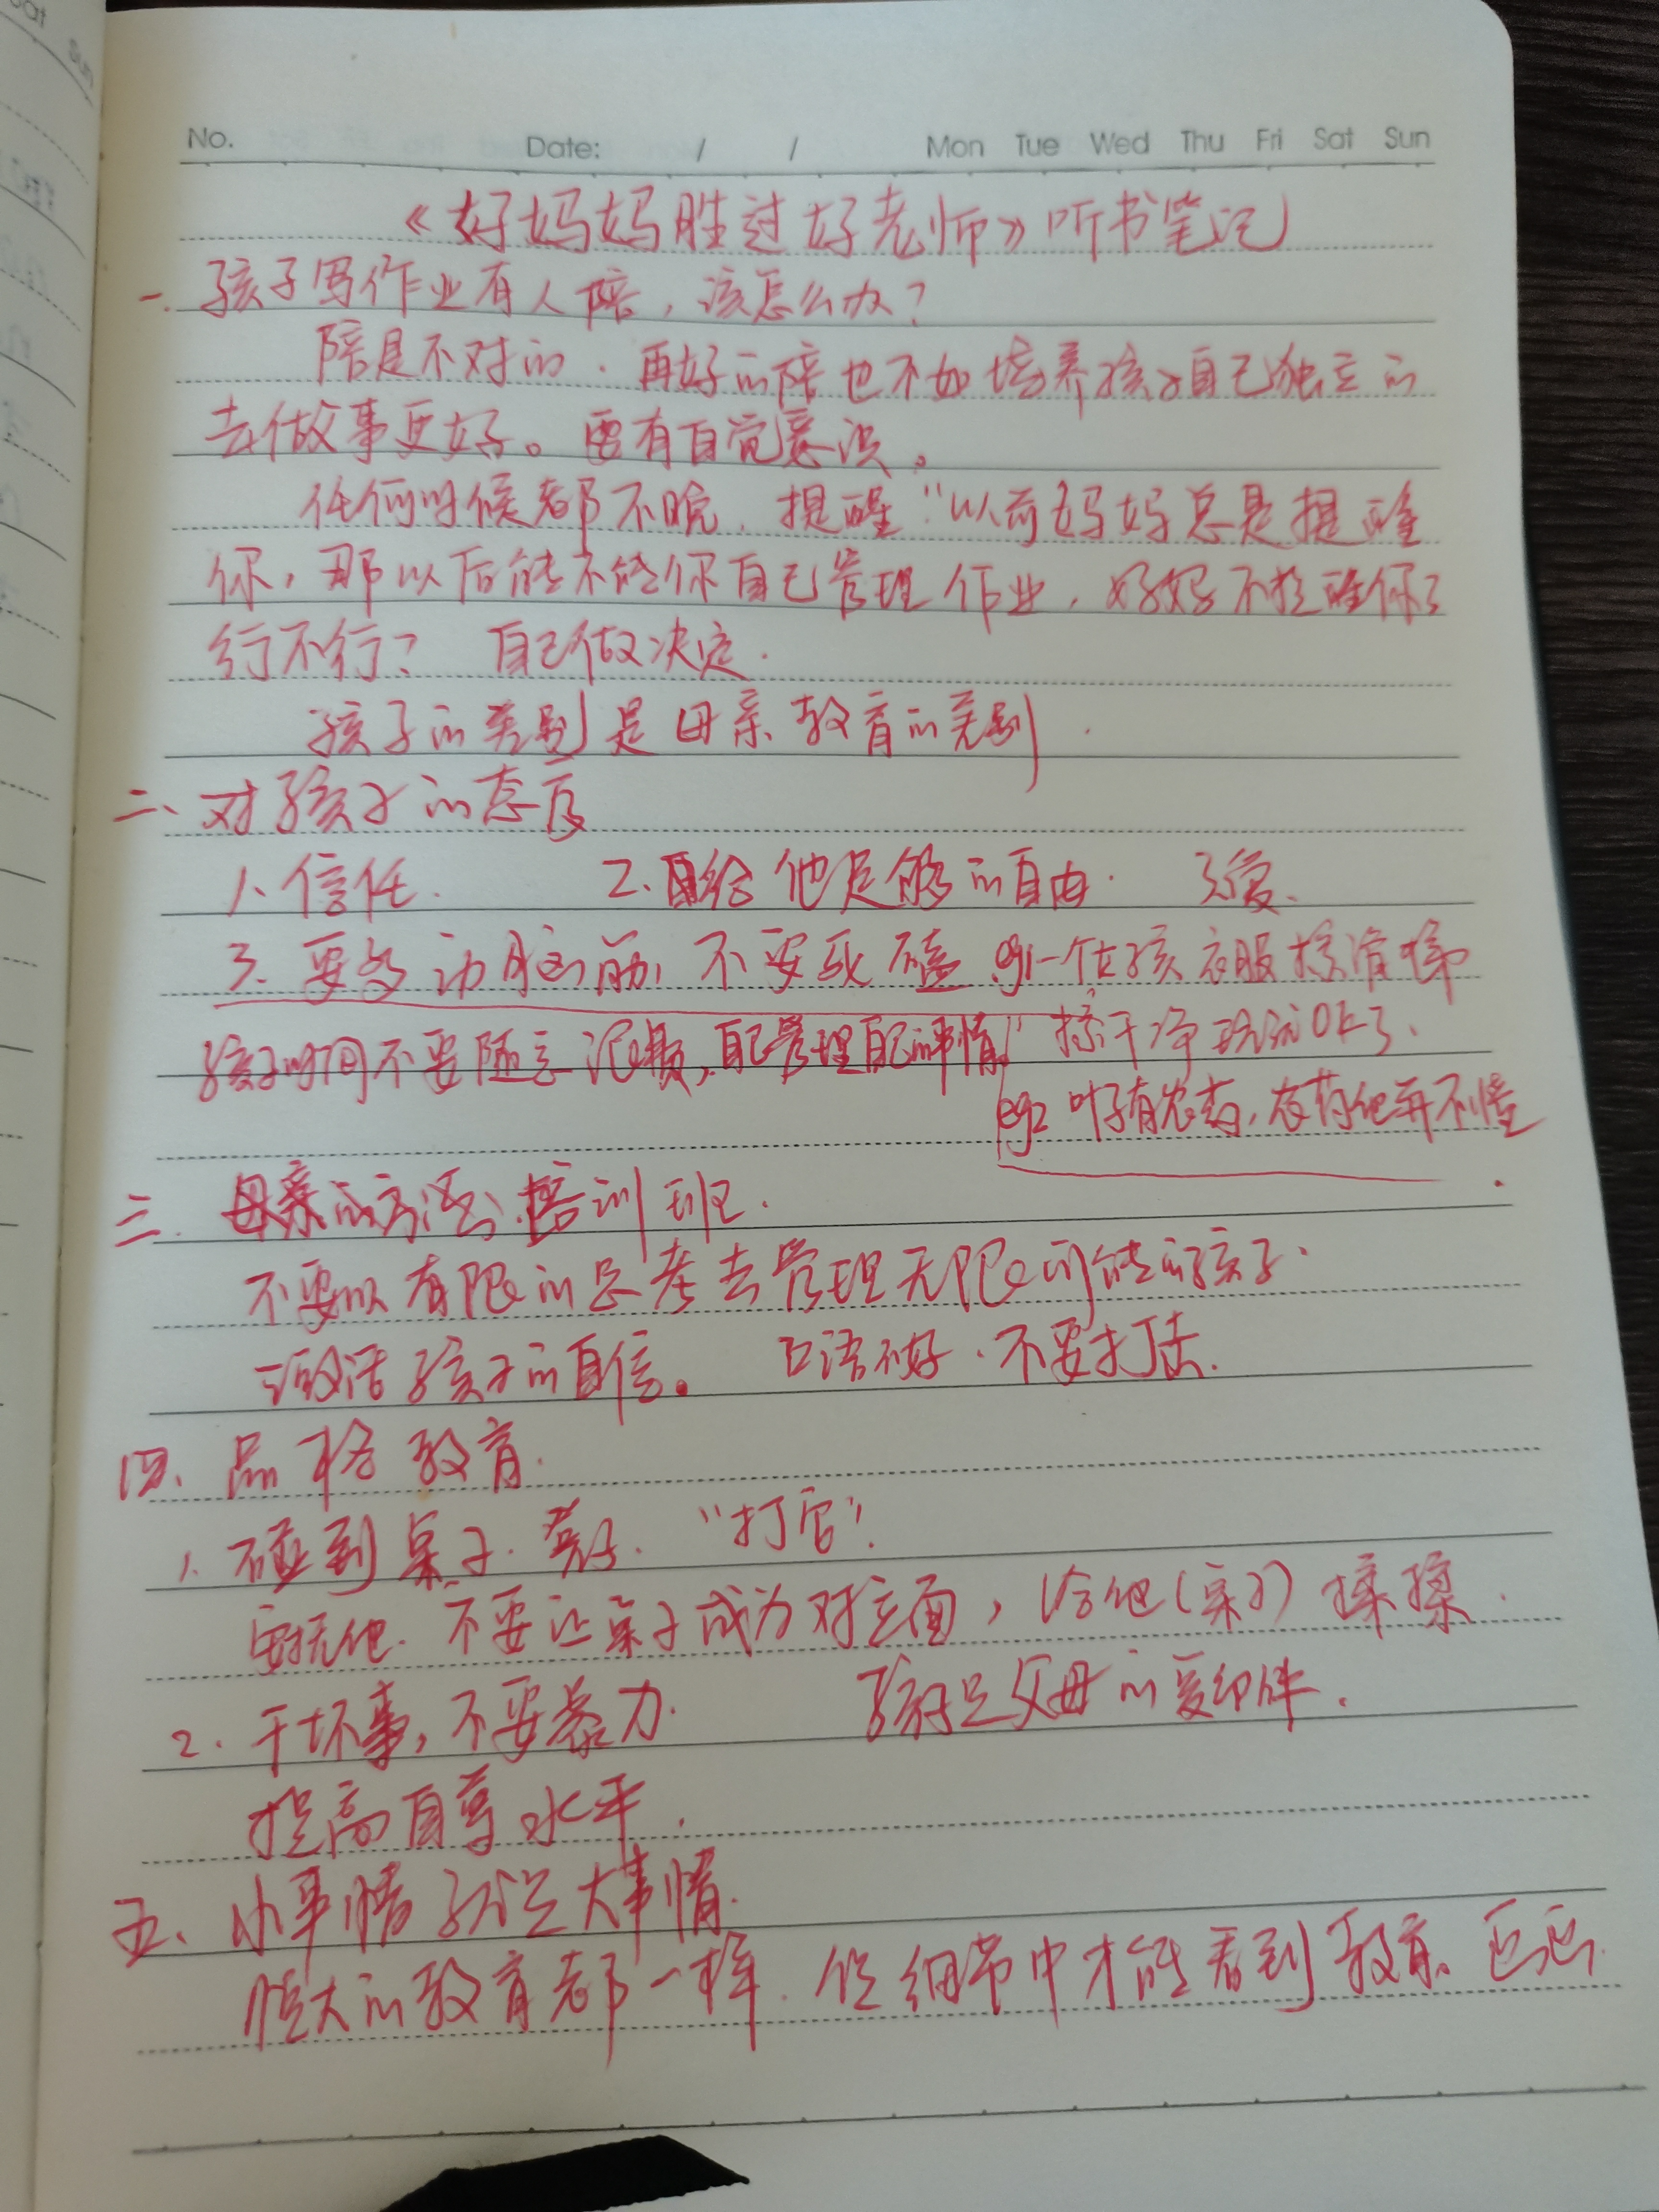 No. Date: / / Mon Tue Wed Thu Fri Sat Sun
《好妈妈胜过好老师》听书笔记
一. 孩子写作业有人陪，该怎么办？
陪是不对的. 再好的陪也不如培养孩子自己独立的
去做事更好。要有自觉意识。
任何时候都不晚. 提醒"以前妈妈总是提醒
你，那以后能不能你自己管理作业，妈妈不提醒你了
行不行？ 自己做决定.
孩子的差别是母亲教育的差别.
二、对孩子的态度
1、信任. 2、给他足够的自由. 3爱.
3. 要多动脑筋，不要死磕 eg1一个女孩衣服擦滑梯
孩子时间不要随意泯灭，自己管理自己的事情" 擦干净玩就OK了.
eg2 叶子有农药，农药他并不懂.
三. 母亲的方法：培训班.
不要以有限的思考去管理无限可能的孩子.
激活孩子的自信。 口语不好. 不要打击.
四、品格教育.
1. 碰到桌子. 凳子. "打它".
安抚他. 不要让桌子成为对立面，给他(桌子)揉揉.
2. 干坏事，不要暴力. 孩子是父母的复印件.
提高自尊水平.
五、小事情就是大事情.
恒大的教育都一样. 但细节中才能看到教育.